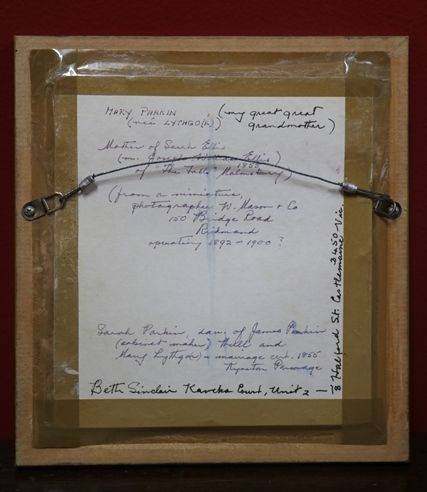 MARY PARKIN (my great great
(née LYTHGO(E) grandmother)
Mother of Sarah Ellis
(m. Joseph Ellis 1855
of "The Falls" Malmsbury)
(from a miniature,
photographer W. Mason & Co
150 Bridge Road
Richmond
operating 1892 - 1900 ?
Sarah Parkin, dau. of James Parkin
(cabinet maker) Hull and
Mary Lythgo(e) - marriage cert. 1855
Parsonage
Beth Sinclair Kaweka Court, Unit 2 -
8 Halford St. Castlemaine 3450 Vic.